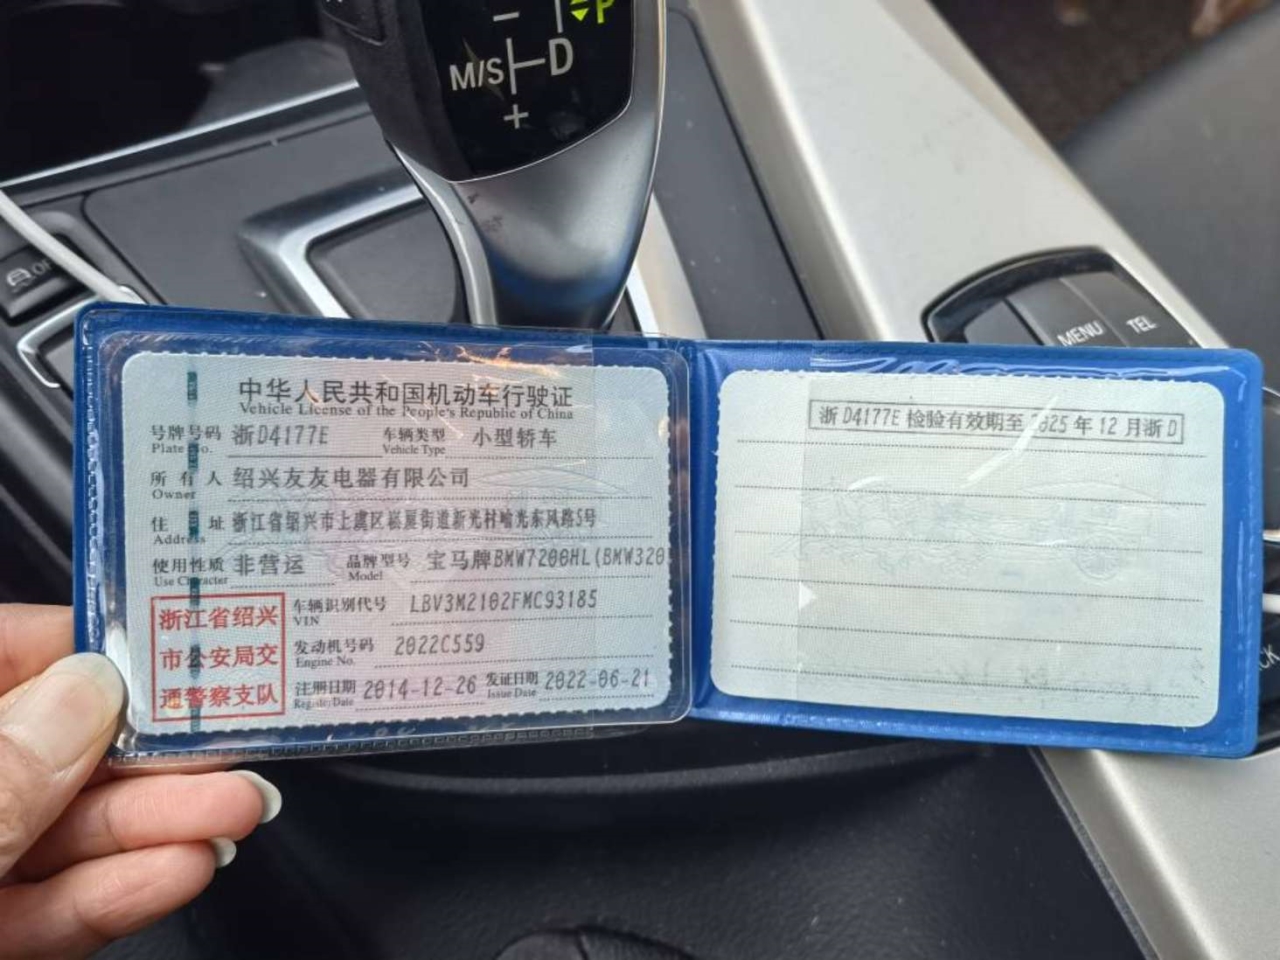 P
M/S D
+
MENU TEL
中华人民共和国机动车行驶证
Vehicle License of the People's Republic of China
号牌号码 浙D4177E 车辆类型 小型轿车
Plate No. Vehicle Type
所有人 绍兴友友电器有限公司
Owner
住址 浙江省绍兴市上虞区崧厦街道新光村哈光东风路5号
Address
使用性质 非营运 品牌型号 宝马牌BMW7200HL(BMW320
Use Character Model
浙江省绍兴
市公安局交
通警察支队
车辆识别代号 LBV3M2102FMC93185
VIN
发动机号码 2022C559
Engine No.
注册日期 2014-12-26 发证日期 2022-06-21
Register Date Issue Date
浙D4177E 检验有效期至 2025 年 12 月浙D